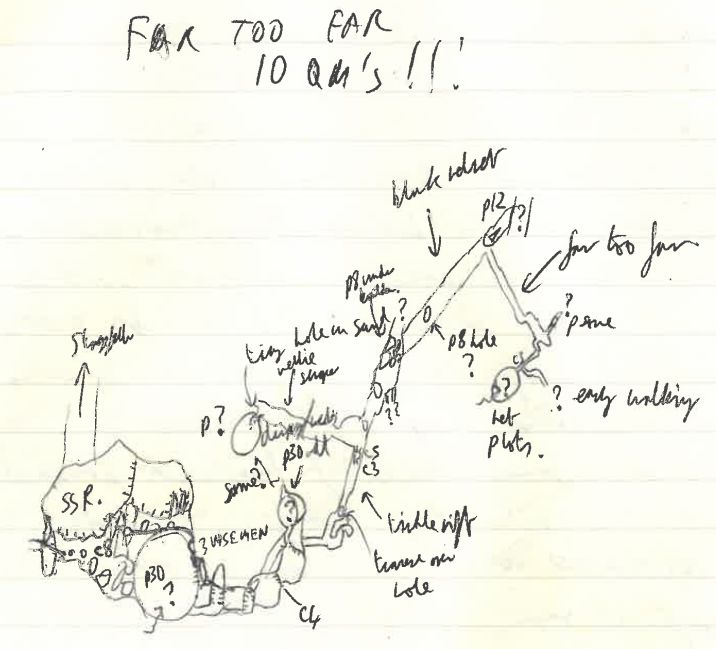 FAR TOO FAR
10 QM's !!!
black velvet
p12
?!
far too far
p8 under
?
tiny hole in sand
wellie
shape
p8 hole
?
?
prune
?
het
plots.
? early walking
??
P?
p30
some?
?
C5
C3
tickle rift
traverse over
hole
SSR.
C8
3 WISEMEN
p30
?
C4